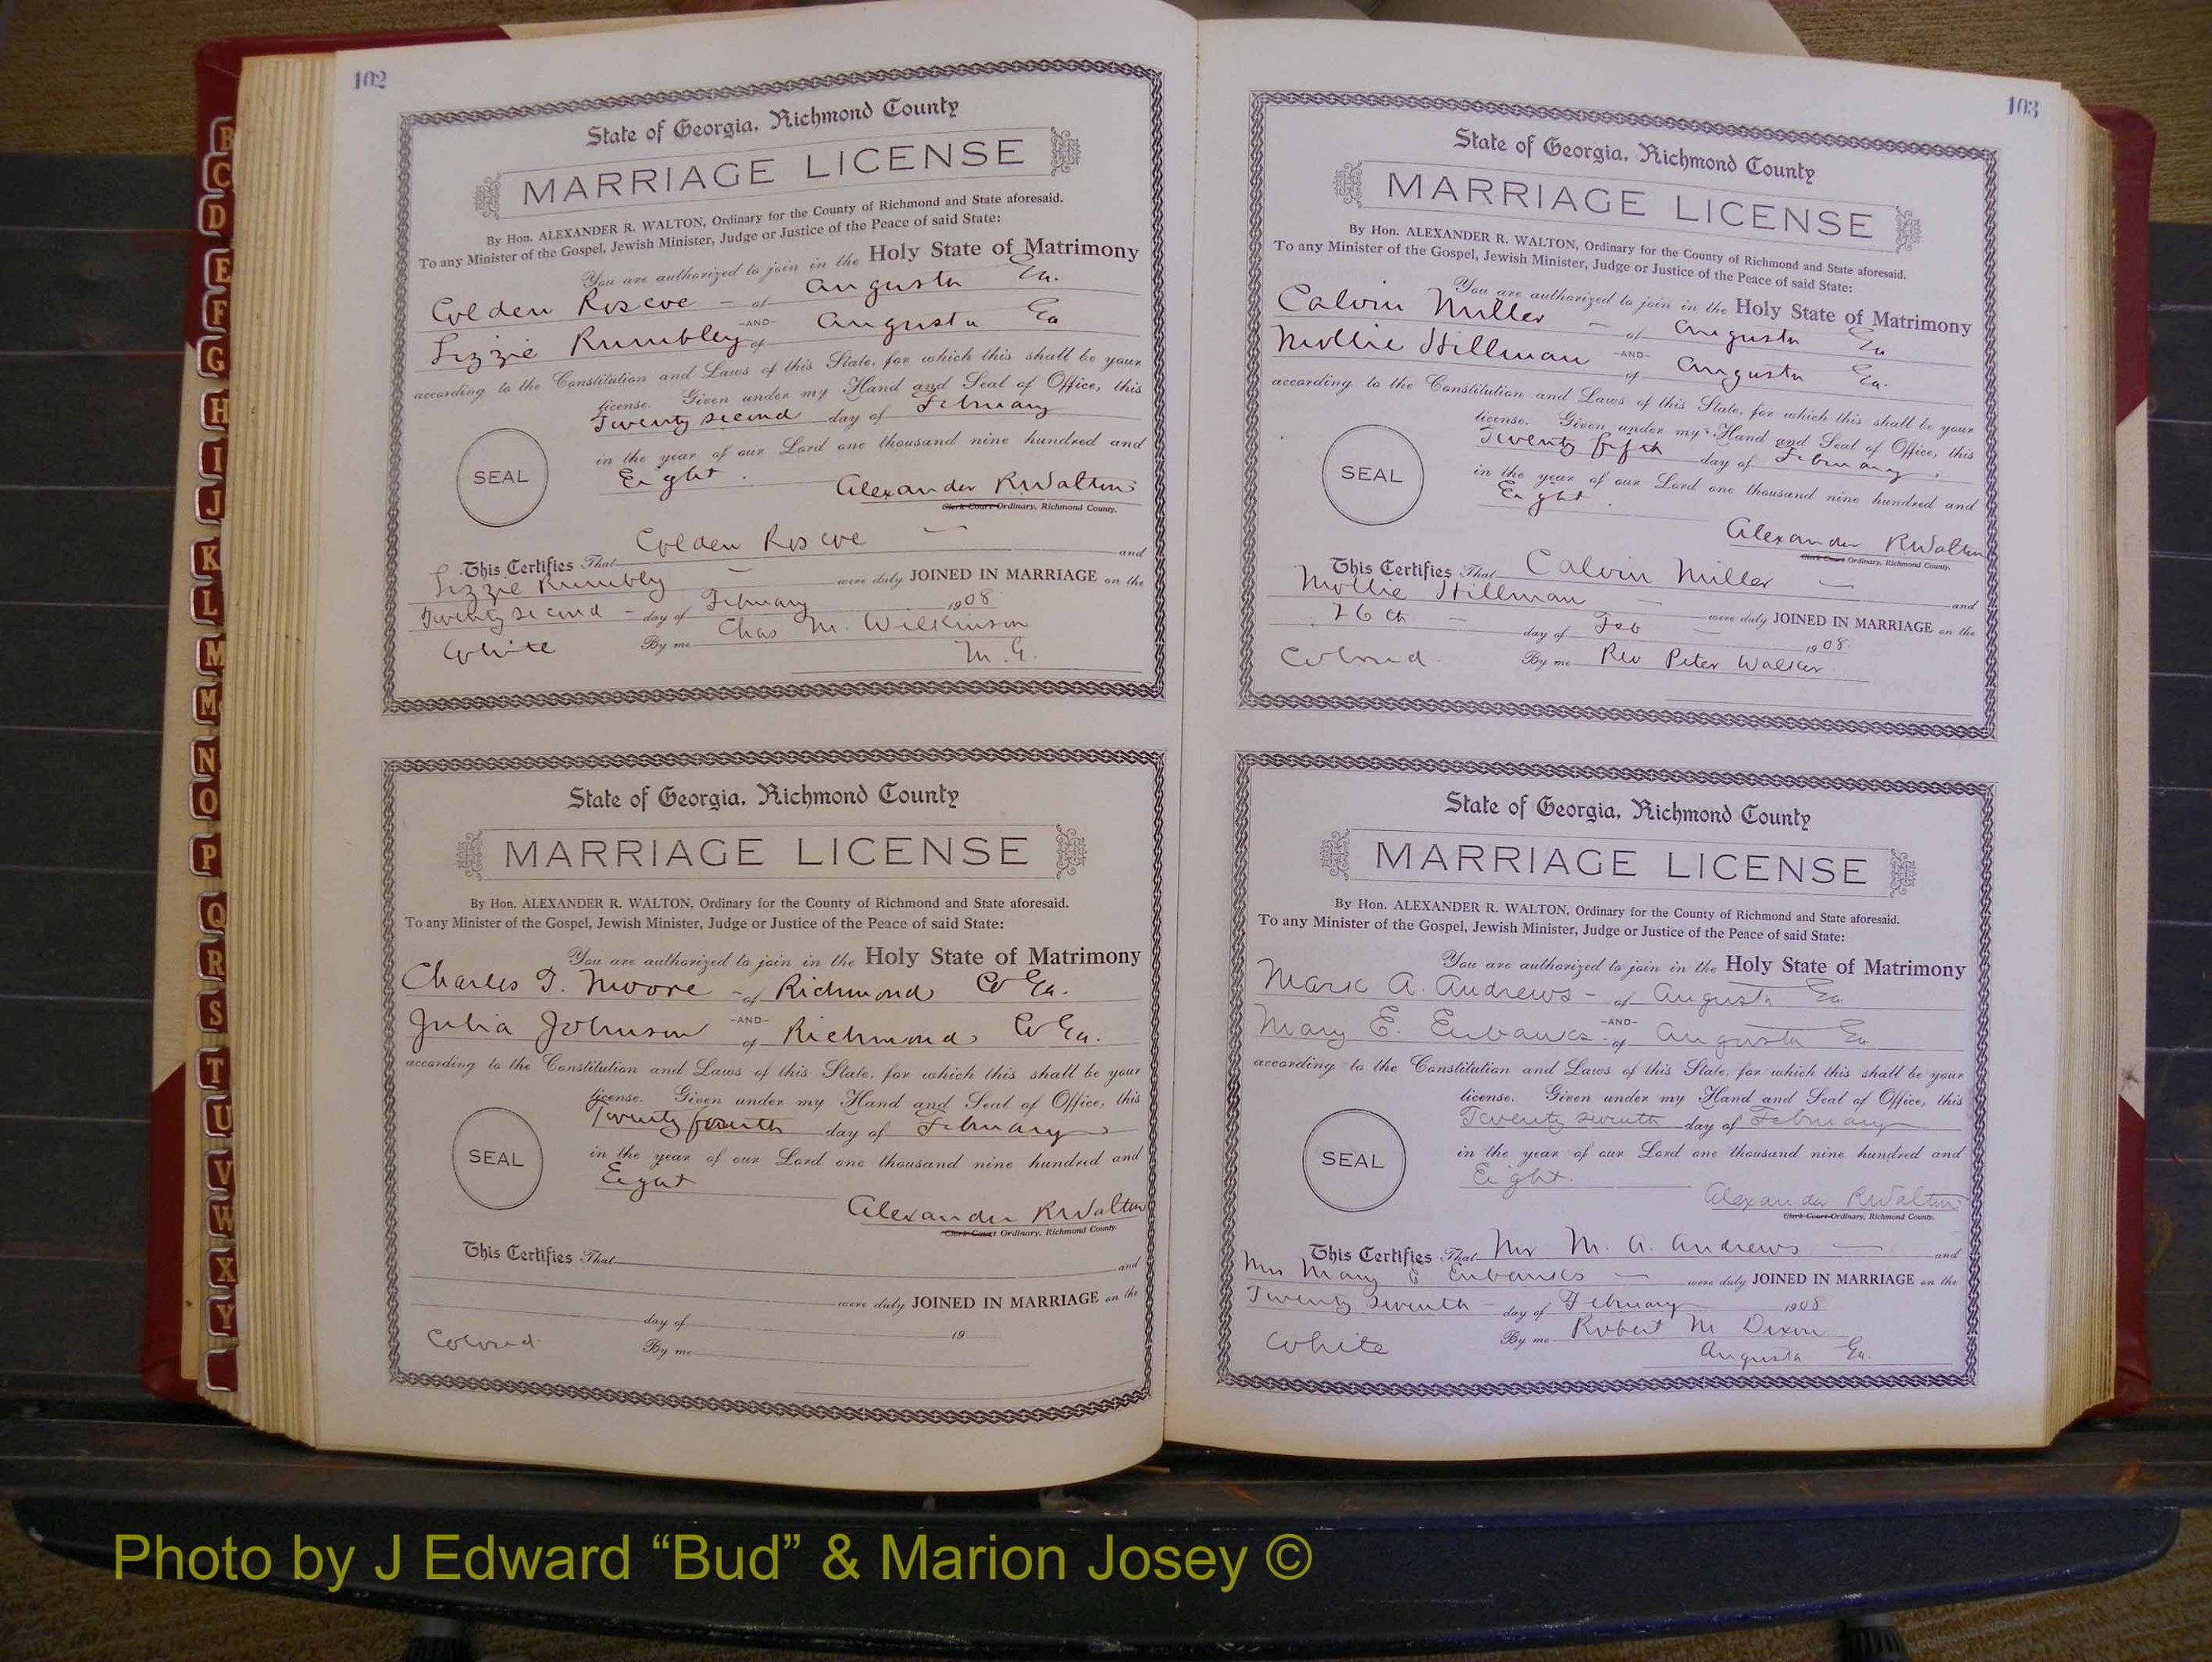 102
State of Georgia, Richmond County
MARRIAGE LICENSE
By Hon. ALEXANDER R. WALTON, Ordinary for the County of Richmond and State aforesaid.
To any Minister of the Gospel, Jewish Minister, Judge or Justice of the Peace of said State:
You are authorized to join in the Holy State of Matrimony
Colden Roscoe - of Augusta Ga.
-AND-
Lizzie Rumbley of Augusta Ga
according to the Constitution and Laws of this State, for which this shall be your
license. Given under my Hand and Seal of Office, this
Twenty second day of February
in the year of our Lord one thousand nine hundred and
SEAL
Eight.
Alexander R Walton
Clerk Court Ordinary, Richmond County.
This Certifies That Colden Roscoe - and
Lizzie Rumbly - were duly JOINED IN MARRIAGE on the
Twenty second - day of February 1908
White By me Chas M. Wilkinson
M. G.
State of Georgia, Richmond County
MARRIAGE LICENSE
By Hon. ALEXANDER R. WALTON, Ordinary for the County of Richmond and State aforesaid.
To any Minister of the Gospel, Jewish Minister, Judge or Justice of the Peace of said State:
You are authorized to join in the Holy State of Matrimony
Charles T. Moore - of Richmond Co Ga.
-AND-
Julia Johnson of Richmond Co Ga.
according to the Constitution and Laws of this State, for which this shall be your
license. Given under my Hand and Seal of Office, this
Twenty fourth day of February
in the year of our Lord one thousand nine hundred and
SEAL
Eight
Alexander R Walton
Clerk Court Ordinary, Richmond County.
This Certifies That and
were duly JOINED IN MARRIAGE on the
day of 19
Colored. By me
103
State of Georgia, Richmond County
MARRIAGE LICENSE
By Hon. ALEXANDER R. WALTON, Ordinary for the County of Richmond and State aforesaid.
To any Minister of the Gospel, Jewish Minister, Judge or Justice of the Peace of said State:
You are authorized to join in the Holy State of Matrimony
Calvin Miller - of Augusta Ga
-AND-
Mollie Hillman of Augusta Ga.
according to the Constitution and Laws of this State, for which this shall be your
license. Given under my Hand and Seal of Office, this
Twenty fifth day of February.
in the year of our Lord one thousand nine hundred and
SEAL
Eight.
Alexander R Walton
Clerk Court Ordinary, Richmond County.
This Certifies That Calvin Miller - and
Mollie Hillman - were duly JOINED IN MARRIAGE on the
26th - day of Feb - 1908.
Colored. By me Rev Peter Walker
State of Georgia, Richmond County
MARRIAGE LICENSE
By Hon. ALEXANDER R. WALTON, Ordinary for the County of Richmond and State aforesaid.
To any Minister of the Gospel, Jewish Minister, Judge or Justice of the Peace of said State:
You are authorized to join in the Holy State of Matrimony
Mark A. Andrews - of Augusta Ga
-AND-
Mary E. Eubanks - of Augusta Ga
according to the Constitution and Laws of this State, for which this shall be your
license. Given under my Hand and Seal of Office, this
Twenty seventh day of February
in the year of our Lord one thousand nine hundred and
SEAL
Eight.
Alexander R Walton
Clerk Court Ordinary, Richmond County.
This Certifies That Mr M. A. Andrews - and
Mrs Mary E Eubanks - were duly JOINED IN MARRIAGE on the
Twenty seventh - day of February 1908
White By me Robert M Dixon
Augusta Ga.
B
C
D
E
F
G
H
I
J
K
L
M
M
N
O
P
Q
R
S
T
U
V
W
X
Y
Photo by J Edward “Bud” & Marion Josey ©